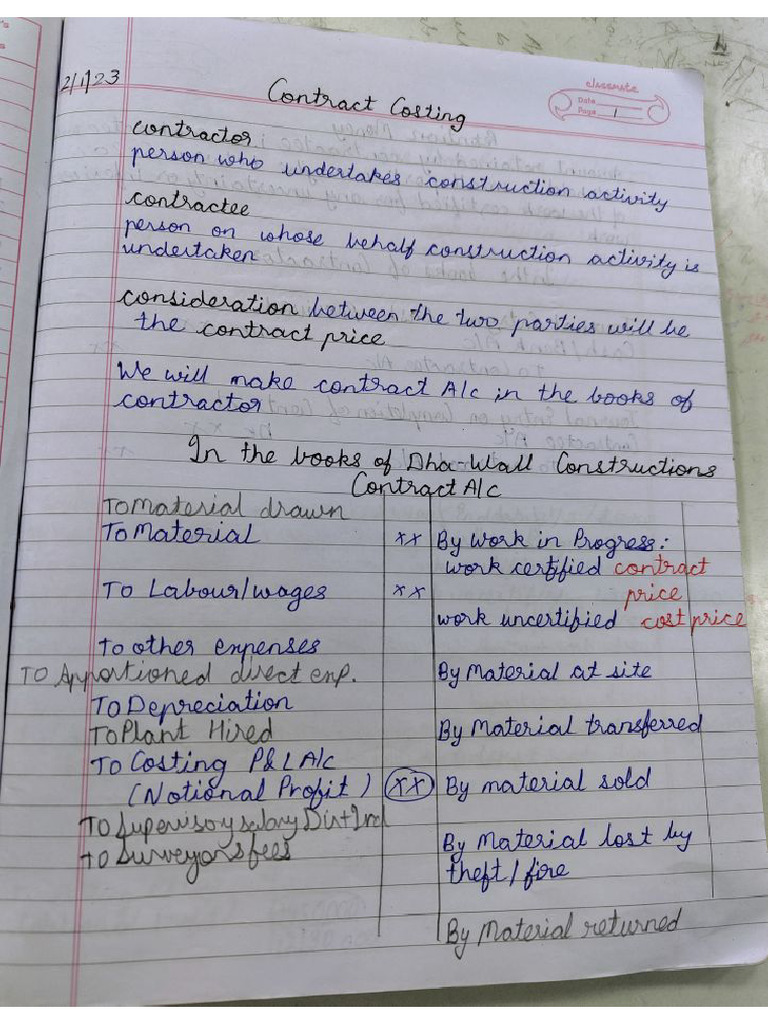 2/1/23
Contract Costing
classmate
Date
Page 1
contractor
person who undertakes construction activity
contractee
person on whose behalf construction activity is
undertaken
consideration between the two parties will be
the contract price
We will make contract A/c in the books of
contractor
In the books of Dha-Wall Constructions
Contract A/c
To Material drawn
To Material xx By Work in Progress:
work certified contract
To Labour/wages xx price
work uncertified cost price
To other expenses
To Apportioned direct exp. By Material at site
To Depreciation
To Plant Hired By Material transferred
To Costing P&L A/c
(Notional Profit) xx By material sold
To Supervisory salary Dir+Ind
To Surveyors fees By Material lost by
theft/fire
By Material returned